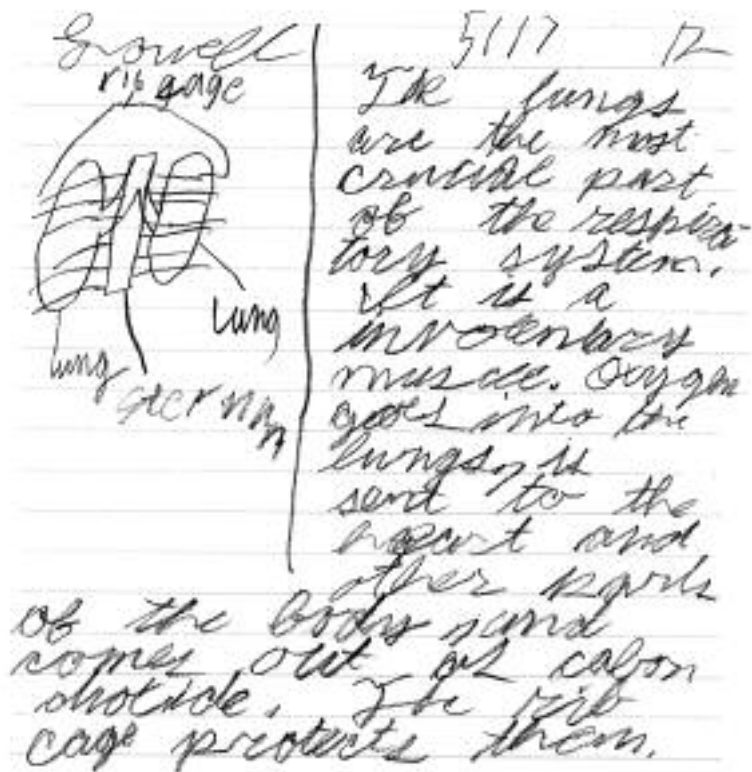 Growell
rib gage
lung
lung
sternum
5/17 12
The lungs
are the most
crucial part
of the respira-
tory system.
It is a
involentary
muscle. Oxygen
goes into the
lungs, is
sent to the
heart and
other parts
of the body, and
comes out as cabon
diotcide. The rib
cage protects them.